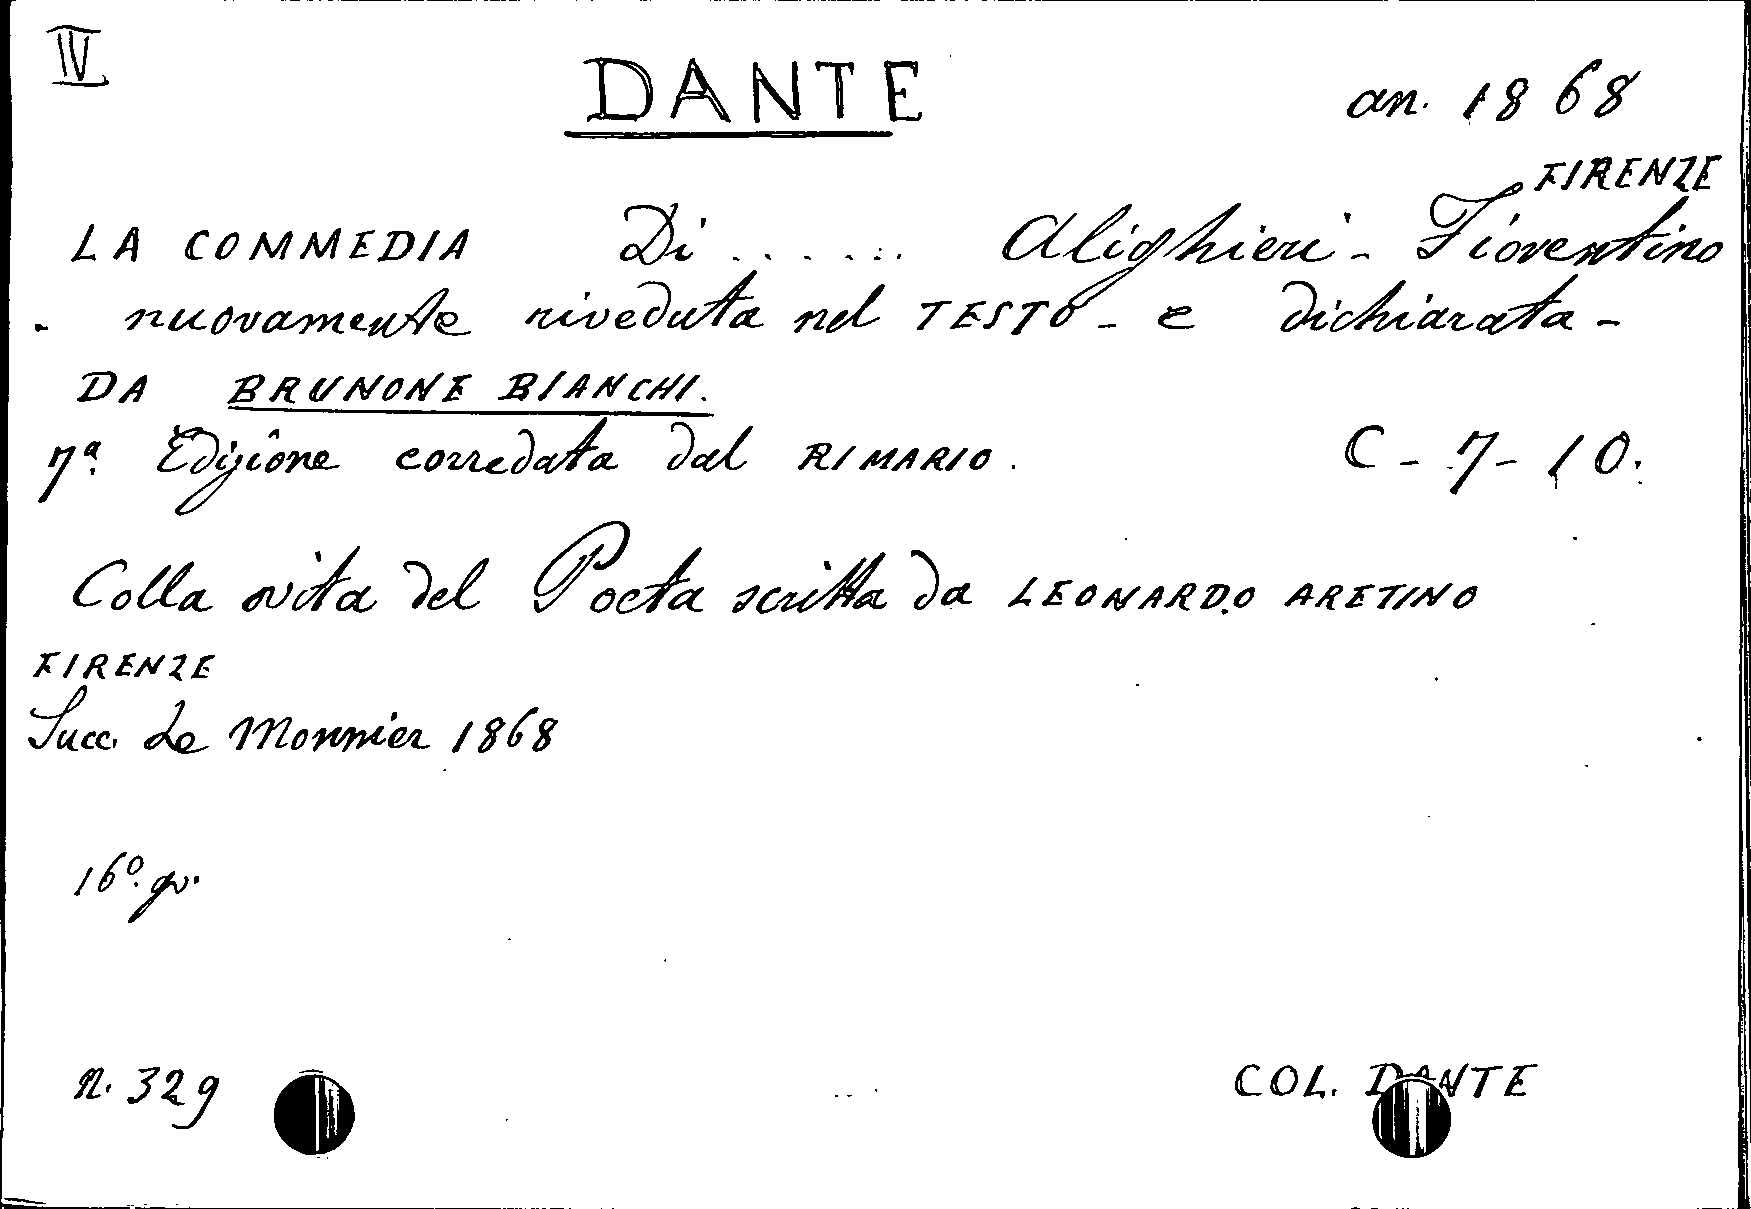 IV
DANTE
an. 1868
FIRENZE
LA COMMEDIA Di ...... Alighieri - Fiorentino
- nuovamente riveduta nel TESTO - e dichiarata -
DA BRUNONE BIANCHI.
7ª Edizione corredata dal RIMARIO.
C - 7 - 10.
Colla vita del Poeta scritta da LEONARDO ARETINO
FIRENZE
Succ. Le Monnier 1868
16º. gr.
n. 329
COL. DANTE